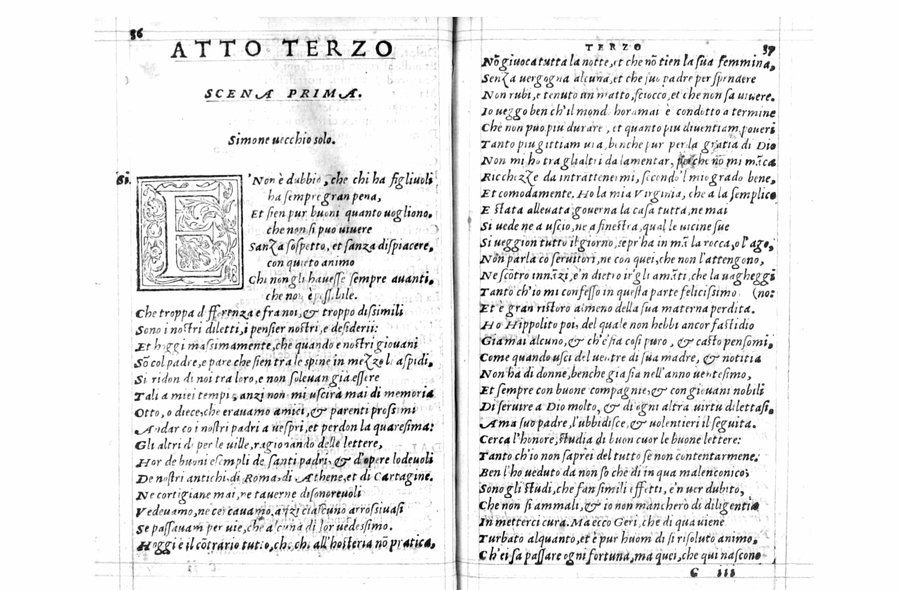 36
ATTO TERZO
SCENA PRIMA.
Simone uecchio solo.
Si.
E 'Non è dubbio, che chi ha figliuoli
ha sempre gran pena,
Et sien pur buoni quanto uogliono,
che non si puo uiuere
Sanza sospetto, et sanza dispiacere,
con quieto animo
Chi non gli hauesse sempre auanti,
che non è possibile.
Che troppa differenza e fra noi, & troppo dissimili
Sono i nostri diletti, i pensier nostri, e desiderii:
Et hoggi massimamente, che quando e nostri giouani
Sõ col padre, e pare che sien tra le spine in mezzo a gl'aspidi,
Si ridon di noi tra loro, e non soleuan gia essere
Tali a miei tempi, anzi non mi uscirà mai di memoria
Otto, o diece, che erauamo amici, & parenti prossimi
Andar co i nostri padri a uespri, et perdon la quaresima:
Gli altri di per le uille, ragionando delle lettere,
Hor de buoni esempli de santi padri, & d'opere lodeuoli
De nostri antichi, di Roma, di Athene, et di Cartagine.
Ne cortigiane mai, ne tauerne disonoreuoli
Vedeuamo, ne cercauamo, anzi ciascuno arrossiuasi
Se passauam per uie, che alcuna di lor uedessimo.
Hoggi è il cõtrario tutto, che chi all'hosteria nõ pratica,
TERZO
37
Nõ giuoca tutta la notte, et che nõ tien la sua femmina,
Senza uergogna alcuna, et che suo padre per spendere
Non rubi, e tenuto un matto, sciocco, et che non sa uiuere.
Io ueggo ben ch'il mondo horamai è condotto a termine
Che non puo piu durare, et quanto piu diuentiam poueri
Tanto piu gittiam uia, benche pur per la gratia di Dio
Non mi ho tra gli altri da lamentar, perche nõ mi mãca
Ricchezze da intrattenermi, secondo'l mio grado bene,
Et comodamente. Ho la mia Virginia, che a la semplice
E stata alleuata, gouerna la casa tutta, ne mai
Si uede ne a uscio, ne a finestra, qual le uicine sue
Si ueggion tutto il giorno, sepr ha in mã la rocca, o l'ago,
Non parla co seruitori, ne con quei, che non l'attengono,
Ne scõtro innãzi, e'n dietro ir gli amãti, che la uagheggi
Tanto ch'io mi confesso in questa parte felicissimo (no:
Et è gran ristoro almeno della sua materna perdita.
Ho Hippolito poi, del quale non hebbi ancor fastidio
Giamai alcuno, & ch'e sia cosi puro, & casto pensomi,
Come quando usci del uentre di sua madre, & notitia
Non ha di donne, benche gia sia nell'anno uentesimo,
Et sempre con buone compagnie, & con giouani nobili
Di seruire a Dio molto, & di ogni altra uirtu dilettasi,
Ama suo padre, l'ubbidisce, & uolentieri il seguita.
Cerca l'honore, studia di buon cuor le buone lettere:
Tanto ch'io non saprei del tutto se non contentarmene.
Ben l'ho ueduto da non so che di in qua malenconico;
Sono gli studi, che fan simili effetti, e'n uer dubito,
Che non si ammali, & io non mancherò di diligentia
In metterci cura. Ma ecco Geri, che di qua uiene
Turbato alquanto, et è pur huom di si risoluto animo,
Ch'ei sa passare ogni fortuna, ma quei, che qui nascono
C iii